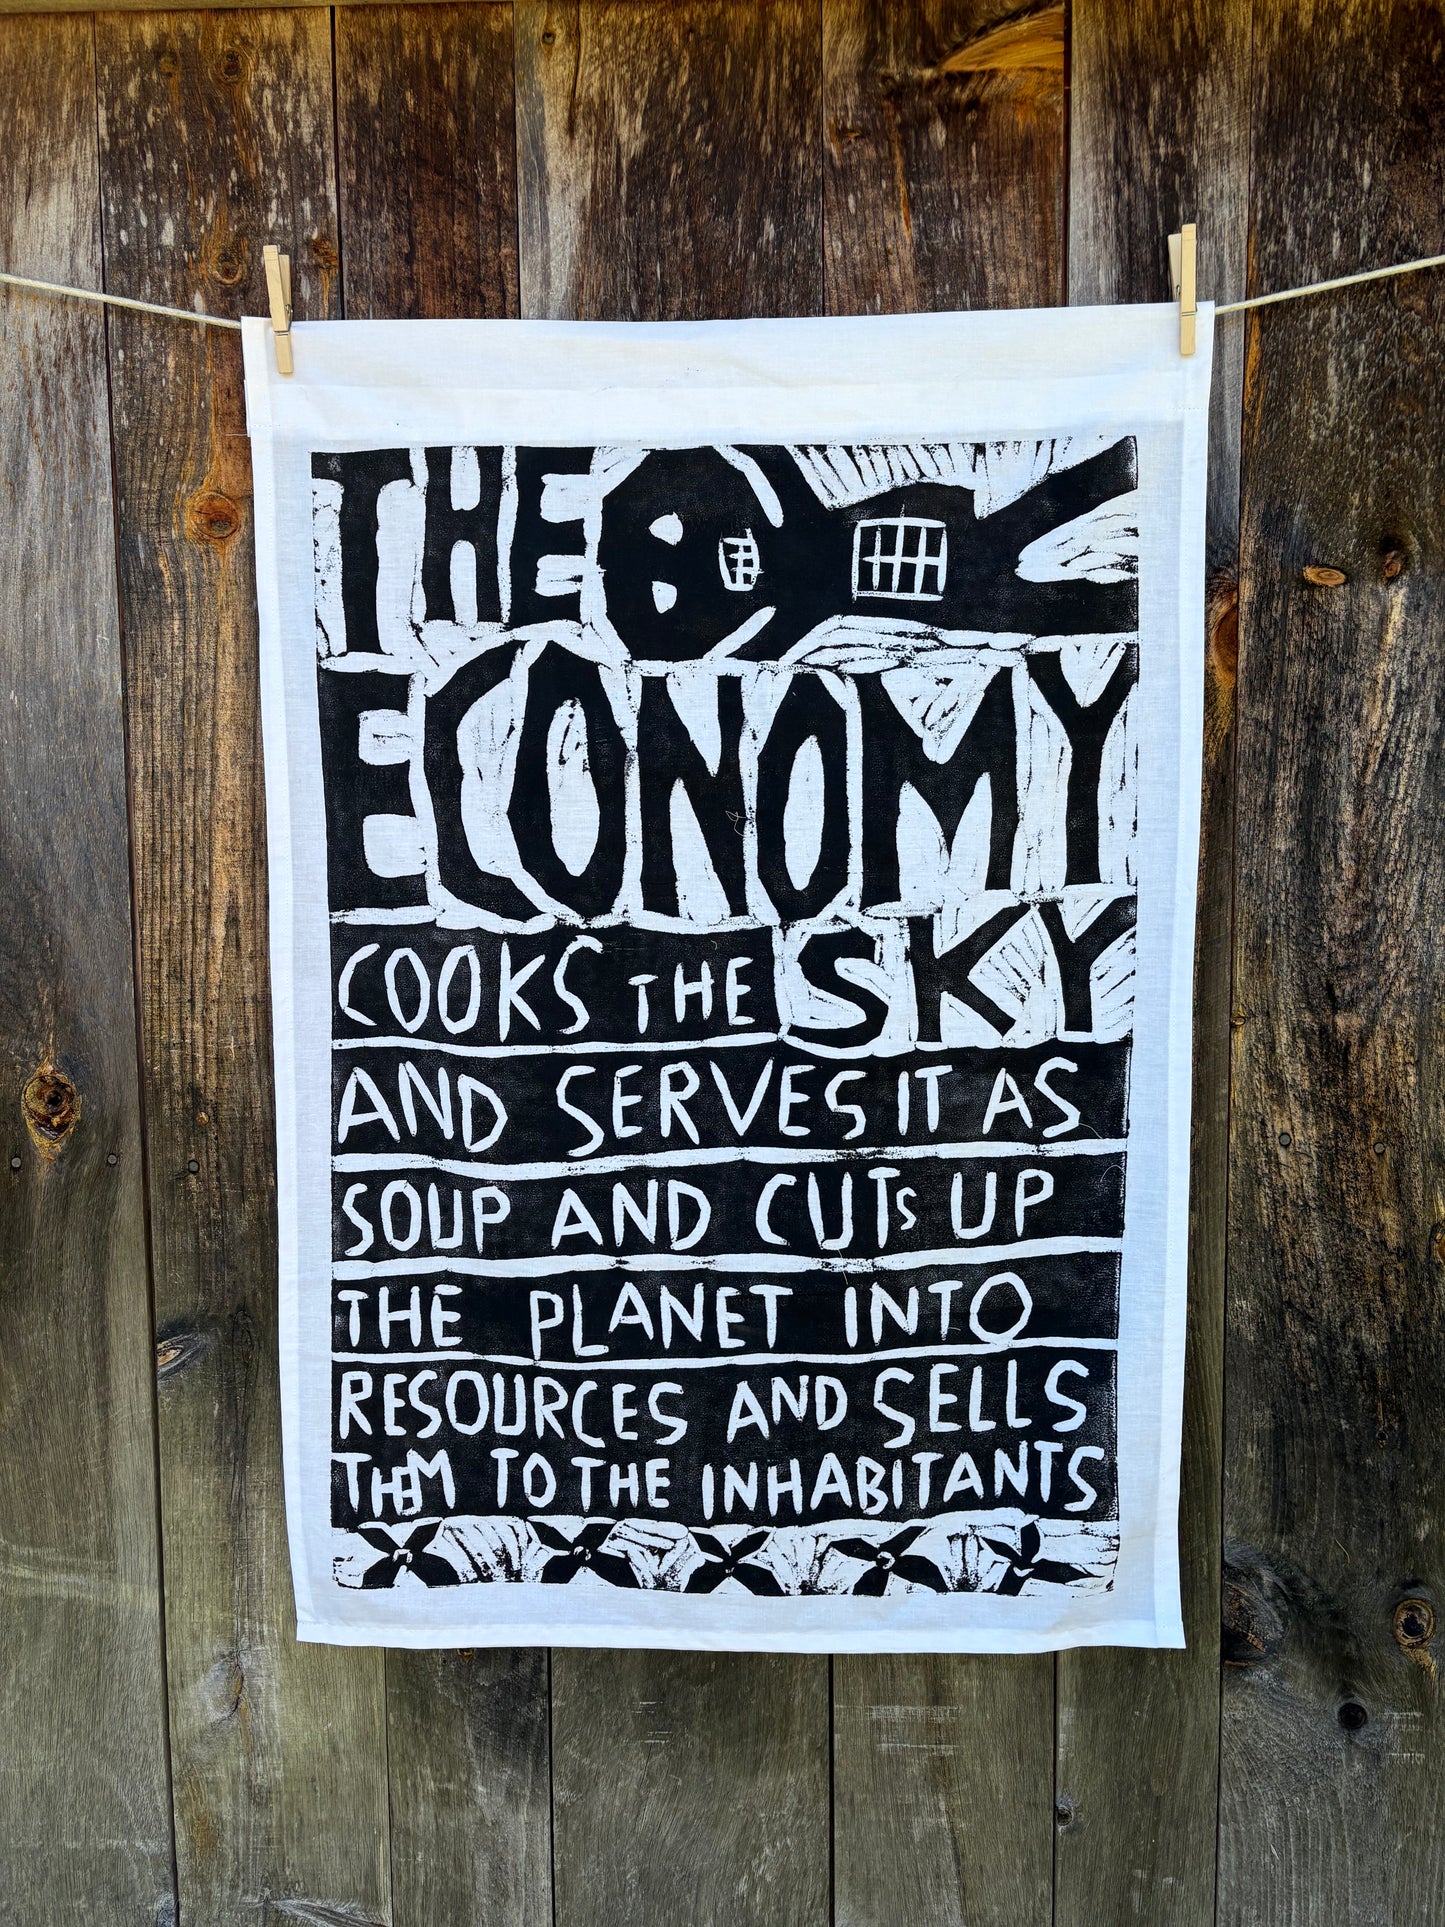 THE
ECONOMY
COOKS THE SKY
AND SERVES IT AS
SOUP AND CUTS UP
THE PLANET INTO
RESOURCES AND SELLS
THEM TO THE INHABITANTS